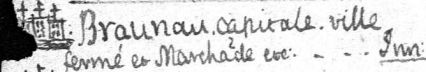 Braunau. capitale. ville
fermé et Marchãde etc. - . . Inn: